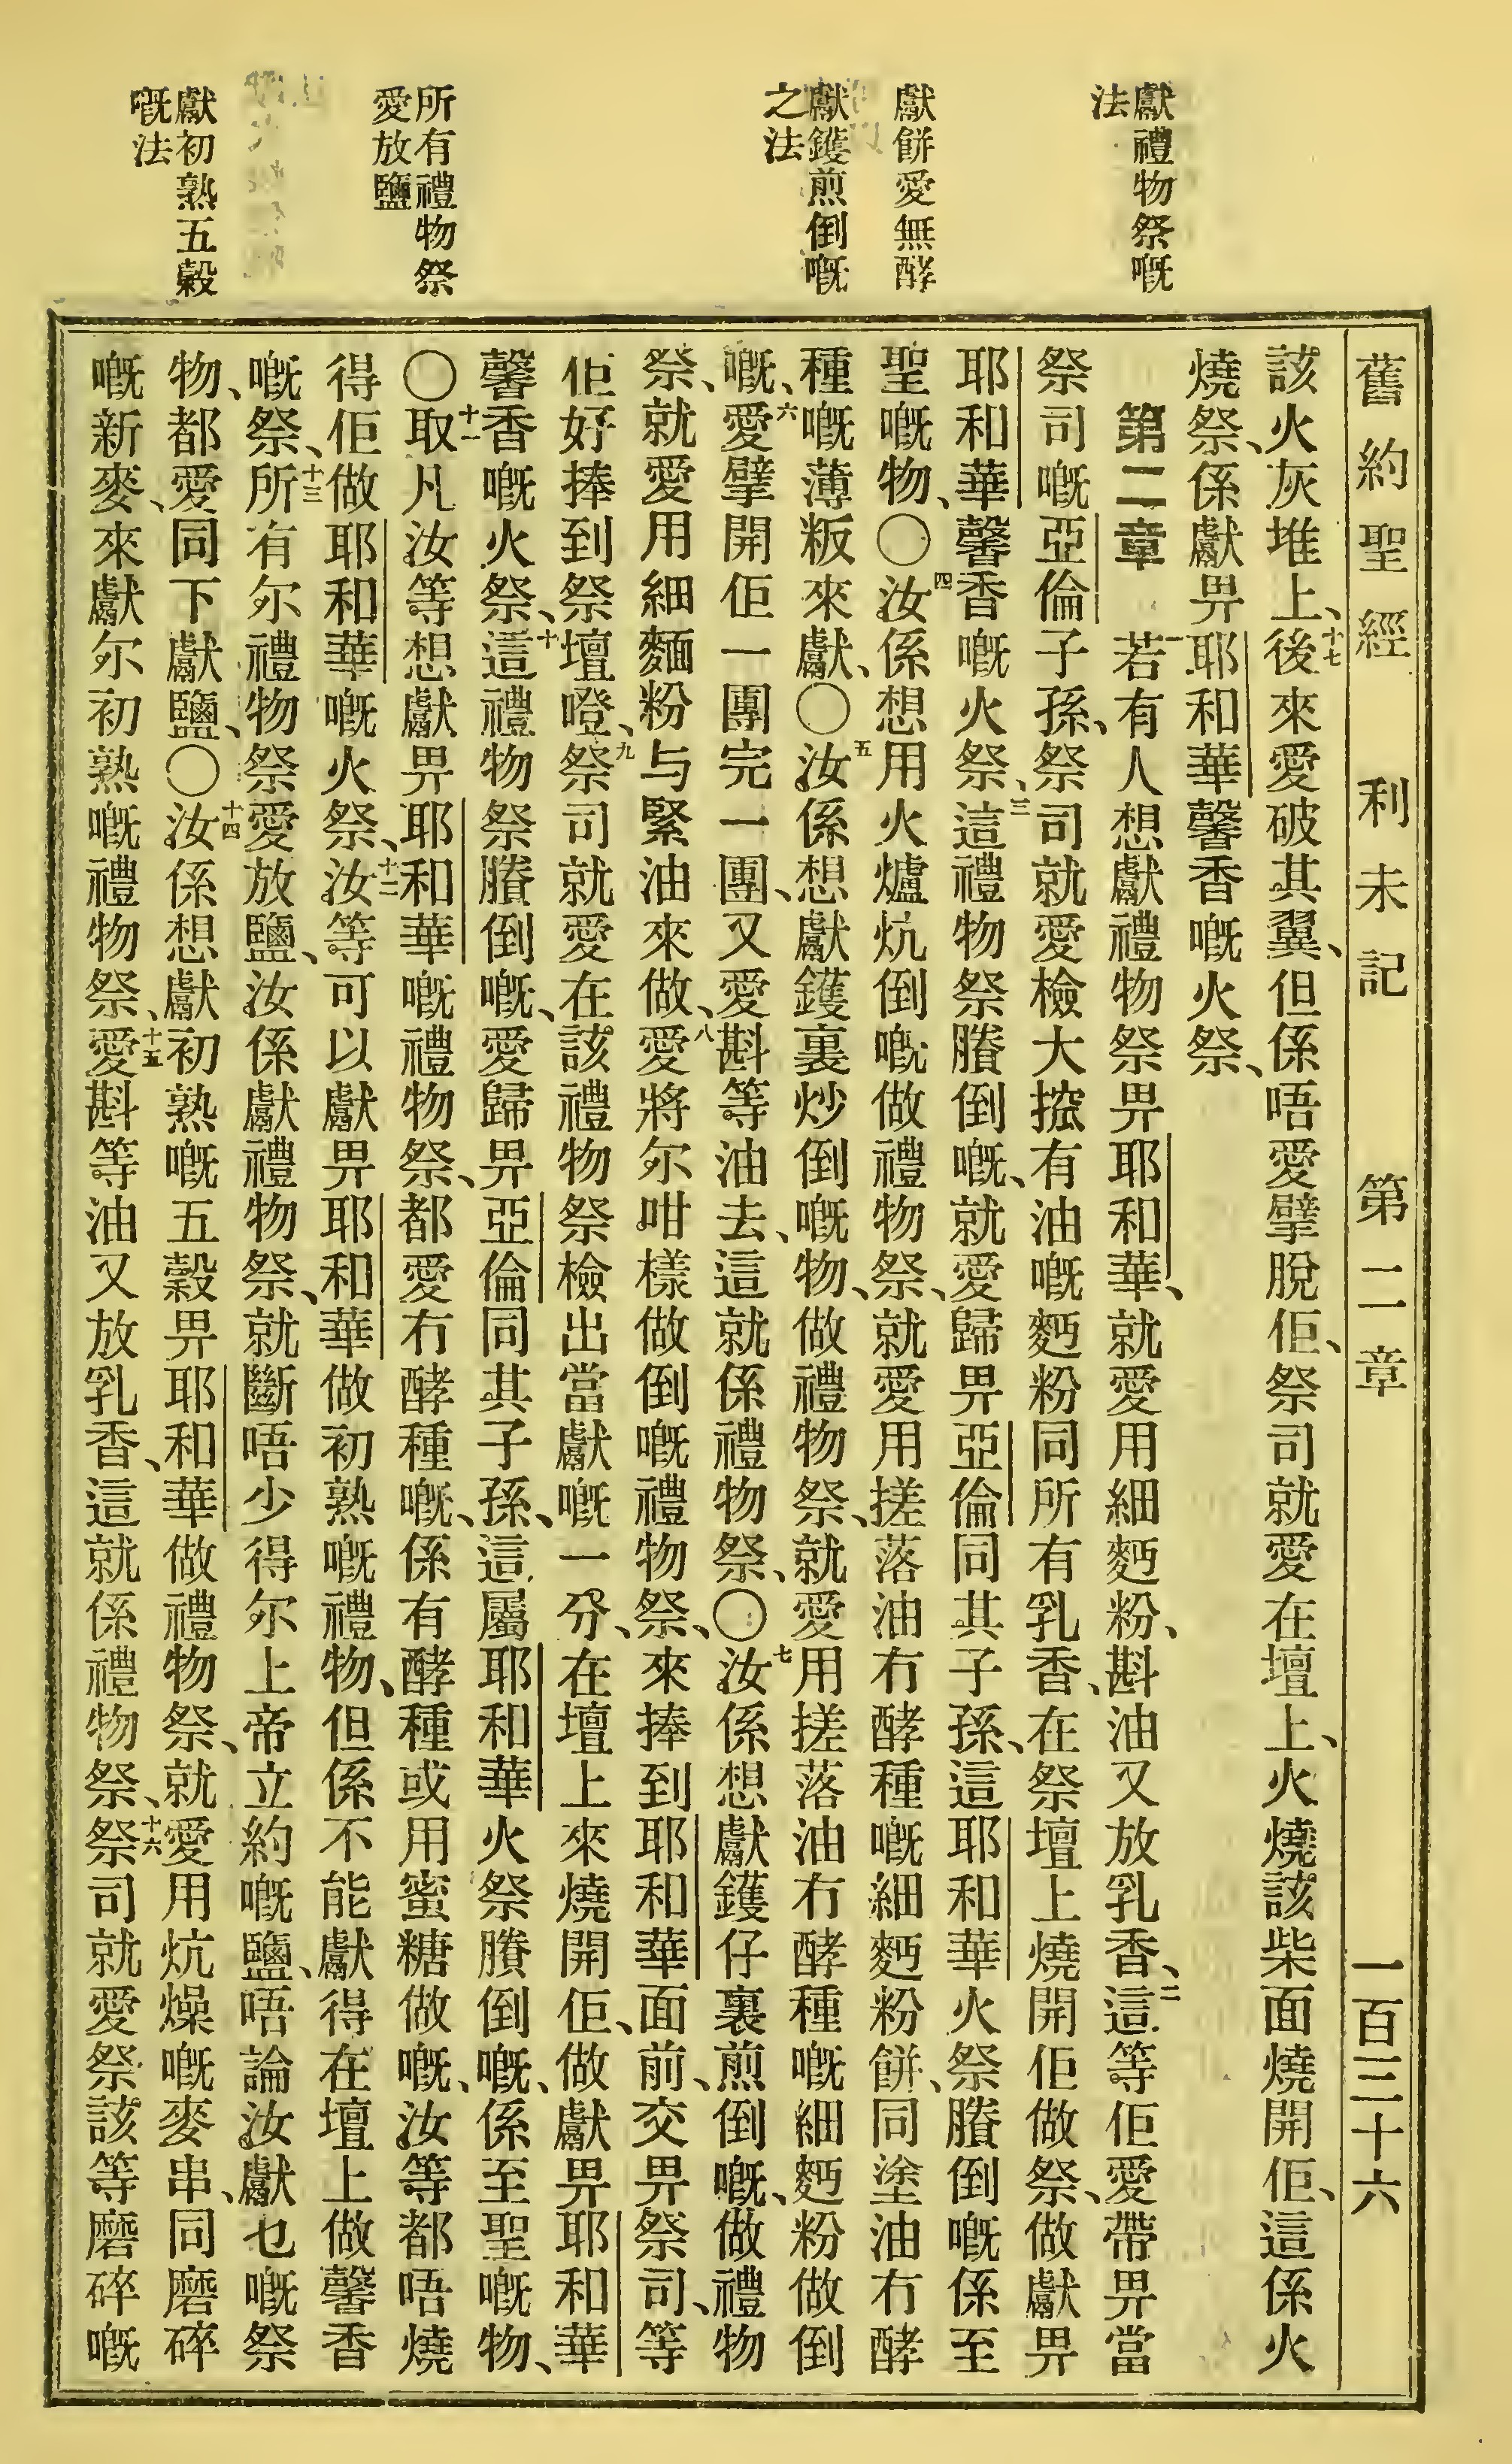 獻禮物祭嘅
法
獻餅愛無酵
獻鑊煎倒嘅
之法
所有禮物祭
愛放鹽
獻初熟五穀
嘅法
舊約聖經 利未記 第二章 一百三十六
該火灰堆上、十七後來愛破其翼、但係唔愛擘脫佢、祭司就愛在壇上、火燒該柴面燒開佢、這係火
燒祭、係獻畀耶和華馨香嘅火祭、
第二章 一若有人想獻禮物祭畀耶和華、就愛用細麪粉、斟油又放乳香、二這等佢愛帶畀當
祭司嘅亞倫子孫、祭司就愛檢大㧬有油嘅麪粉同所有乳香、在祭壇上燒開佢做祭、做獻畀
耶和華馨香嘅火祭、三這禮物祭賸倒嘅、就愛歸畀亞倫同其子孫、這耶和華火祭賸倒嘅係至
聖嘅物、〇四汝係想用火爐炕倒嘅做禮物祭、就愛用搓落油冇酵種嘅細麪粉餅、同塗油冇酵
種嘅薄粄來獻、〇五汝係想獻鑊裏炒倒嘅物、做禮物祭、就愛用搓落油冇酵種嘅細麪粉做倒
嘅、六愛擘開佢一團完一團、又愛斟等油去、這就係禮物祭、〇七汝係想獻鑊仔裏煎倒嘅、做禮物
祭、就愛用細麵粉与緊油來做、八愛將尔咁樣做倒嘅禮物祭、來捧到耶和華面前、交畀祭司、等
佢好捧到祭壇嶝、九祭司就愛在該禮物祭檢出當獻嘅一分、在壇上來燒開佢、做獻畀耶和華
馨香嘅火祭、十這禮物祭賸倒嘅、愛歸畀亞倫同其子孫、這屬耶和華火祭賸倒嘅、係至聖嘅物、
〇十一取凡汝等想獻畀耶和華嘅禮物祭、都愛冇酵種嘅、係有酵種或用蜜糖做嘅、汝等都唔燒
得佢做耶和華嘅火祭、十二汝等可以獻畀耶和華做初熟嘅禮物、但係不能獻得在壇上做馨香
嘅祭、十三所有尔禮物祭愛放鹽、汝係獻禮物祭、就斷唔少得尔上帝立約嘅鹽、唔論汝獻乜嘅祭
物、都愛同下獻鹽、〇十四汝係想獻初熟嘅五穀畀耶和華做禮物祭、就愛用炕燥嘅麥串、同磨碎
嘅新麥、來獻尔初熟嘅禮物祭、十五愛斟等油又放乳香、這就係禮物祭、十六祭司就愛祭該等磨碎嘅